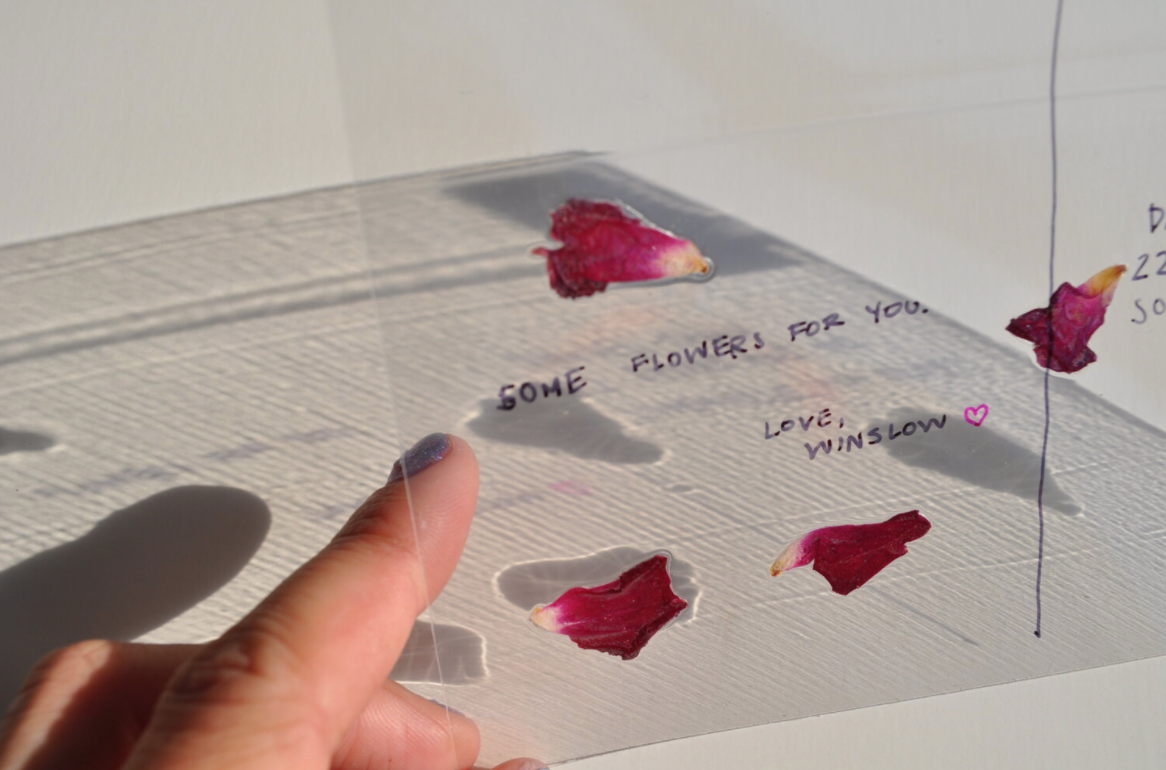 SOME FLOWERS FOR YOU.
LOVE,
WINSLOW ♡
22